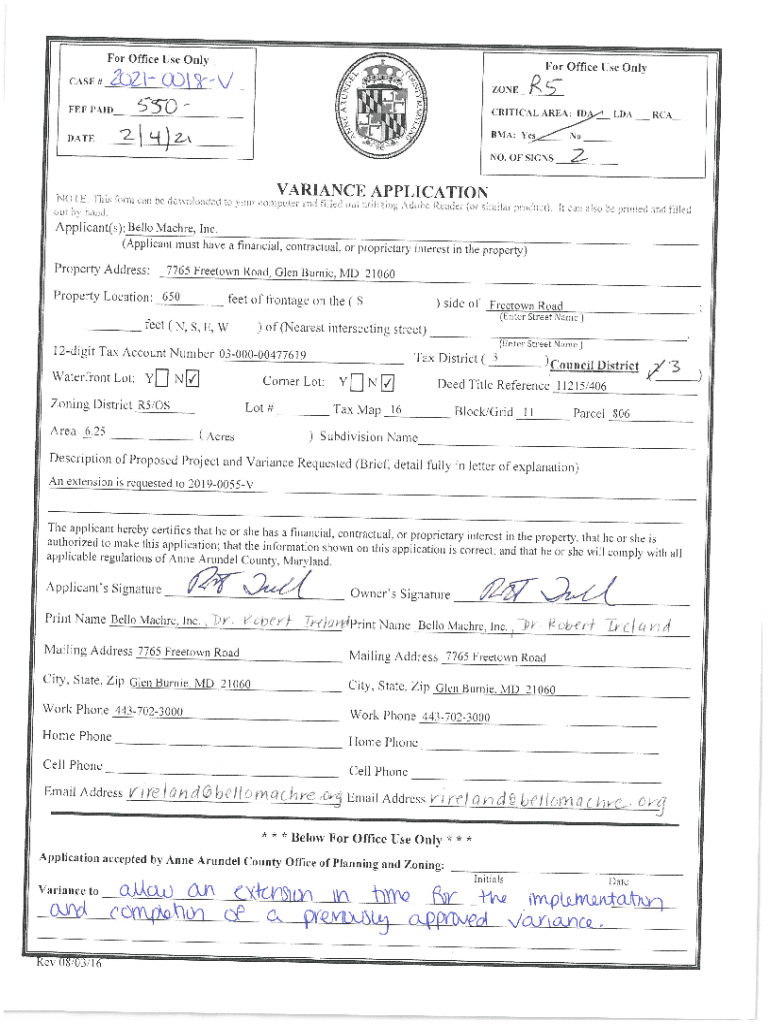 For Office Use Only
CASE # 2021-0018-V
FEE PAID 550-
DATE 2/4/21
ANNE ARUNDEL COUNTY MARYLAND
For Office Use Only
ZONE R5
CRITICAL AREA: IDA LDA RCA
BMA: Yes No
NO. OF SIGNS 2
VARIANCE APPLICATION
NOTE: This form can be downloaded to your computer and filled out utilizing Adobe Reader (or similar product). It can also be printed and filled
out by hand.
Applicant(s): Bello Machre, Inc.
(Applicant must have a financial, contractual, or proprietary interest in the property)
Property Address: 7765 Freetown Road, Glen Burnie, MD 21060
Property Location: 650 feet of frontage on the ( S ) side of Freetown Road ;
(Enter Street Name )
feet ( N, S, E, W ) of (Nearest intersecting street) .
(Enter Street Name )
12-digit Tax Account Number 03-000-00477619 Tax District ( 3 ) Council District 3 )
Waterfront Lot: Y N ✓ Corner Lot: Y N ✓ Deed Title Reference 11215/406
Zoning District R5/OS Lot # Tax Map 16 Block/Grid 11 Parcel 806
Area 6.25 ( Acres ) Subdivision Name
Description of Proposed Project and Variance Requested (Brief, detail fully in letter of explanation)
An extension is requested to 2019-0055-V
The applicant hereby certifies that he or she has a financial, contractual, or proprietary interest in the property, that he or she is
authorized to make this application; that the information shown on this application is correct; and that he or she will comply with all
applicable regulations of Anne Arundel County, Maryland.
Applicant's Signature Owner's Signature
Print Name Bello Machre, Inc. , Dr. Robert Ireland Print Name Bello Machre, Inc. , Dr. Robert Ireland
Mailing Address 7765 Freetown Road Mailing Address 7765 Freetown Road
City, State, Zip Glen Burnie, MD 21060 City, State, Zip Glen Burnie, MD 21060
Work Phone 443-702-3000 Work Phone 443-702-3000
Home Phone Home Phone
Cell Phone Cell Phone
Email Address rireland@bellomachre.org Email Address rireland@bellomachre.org
* * * Below For Office Use Only * * *
Application accepted by Anne Arundel County Office of Planning and Zoning:
Initials Date
Variance to allow an extension in time for the implementation
and completion of a previously approved variance.
Rev 08/03/16